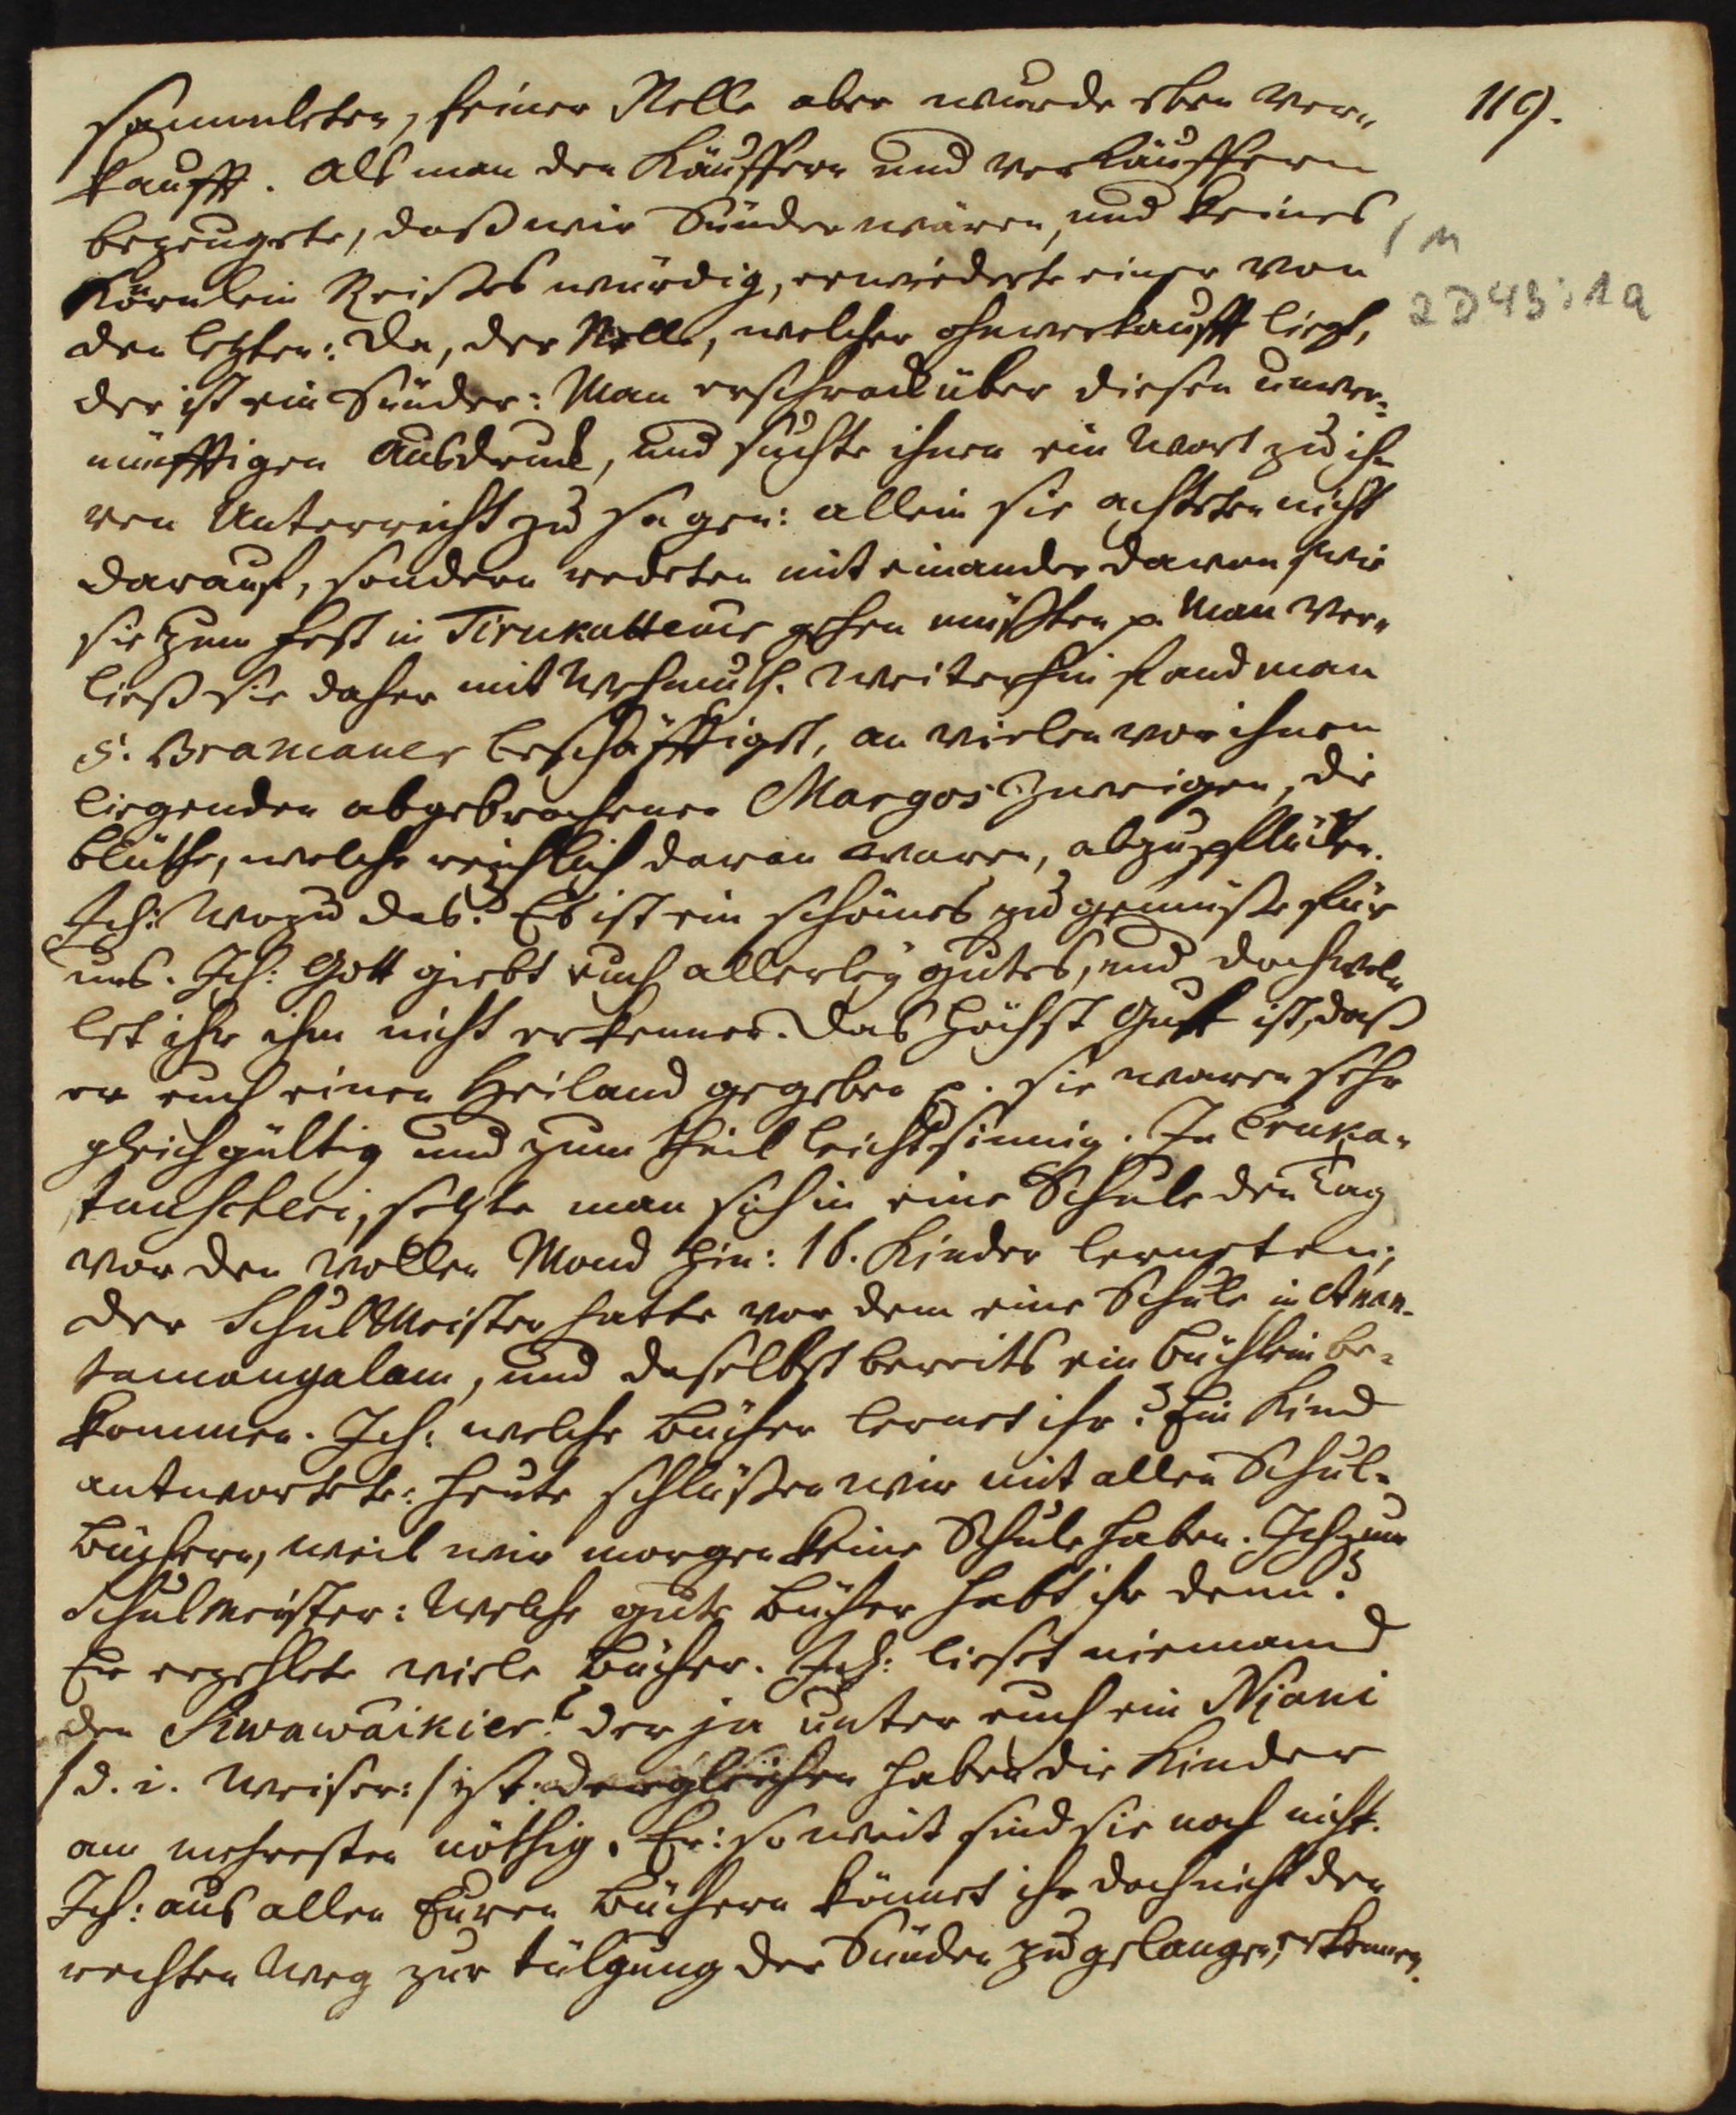 119.
sammleten, feiner Nelle aber wurde eben ver„
kaufft. Als man den Käuffern und verkäuffern
bezeugete, daß wir Sünder wären, und keines
Körnlein Reißes würdig, erwiederte einer von
den letzten: Da, der Nelle, welcher ohnverkaufft liegt,
der ist ein Sünder: Man erschrack über diesen unver=
nünfftigen Ausdruck, und suchte ihnen ein Wort zu ih
ren Unterricht zu sagen: allein sie achteten nicht
darauf, sondern redeten mit einander davon, wie
sie zum Fest in Tirukatteur gehen müßten p. Man ver„
ließ sie daher mit Wehmuth. Weiterhin fand man
5. Bramaner beschäfftiget, an vielen vor ihnen
liegenden abgebrochenen Margos Zweigen, die
blüthe, welche reichlich daran waren, abzupflücken.
Ich: Wozu das? Es ist ein schönes zugemüße für
uns. Ich: Gott giebt euch allerley gutes, und doch wol„
let ihr ihn nicht erkennen. Das höchst Gutt ist, daß
er euch einen Heiland gegeben p. sie waren sehr
gleichgültig und zum theil leichtsinnig. In Eruka„
tanscheri, setzte man sich in eine Schule den Tag
vor den vollen Mond hin: 16. Kinder lerneten;
der SchulMeister hatte vor dem eine Schule in Anan„
tamangalam, und daselbst bereits ein büchlein be„
kommen. Ich: welche bücher lernet ihr? Ein Kind
antwortete: heute schlüßen wir mit allen Schul„
büchern, weil wir morgen keine Schule haben. Ich zum
Schulmeister: Welche gute bücher habt ihr denn?
Er erzehlete viele bücher. Ich: lieset niemand
den Siwawäikier? der ja unter euch ein Njani
/d. i. Weiser:/ ist: dergleichen haben die Kinder
am mehresten nöthig. Er: so weit sind sie noch nicht.
Ich: aus allen Euren büchern könnet ihr doch nicht den
rechten Weg zur tülgung der Sünden zu gelangen, erkennen.
1 M
2 D 43 : 1 a